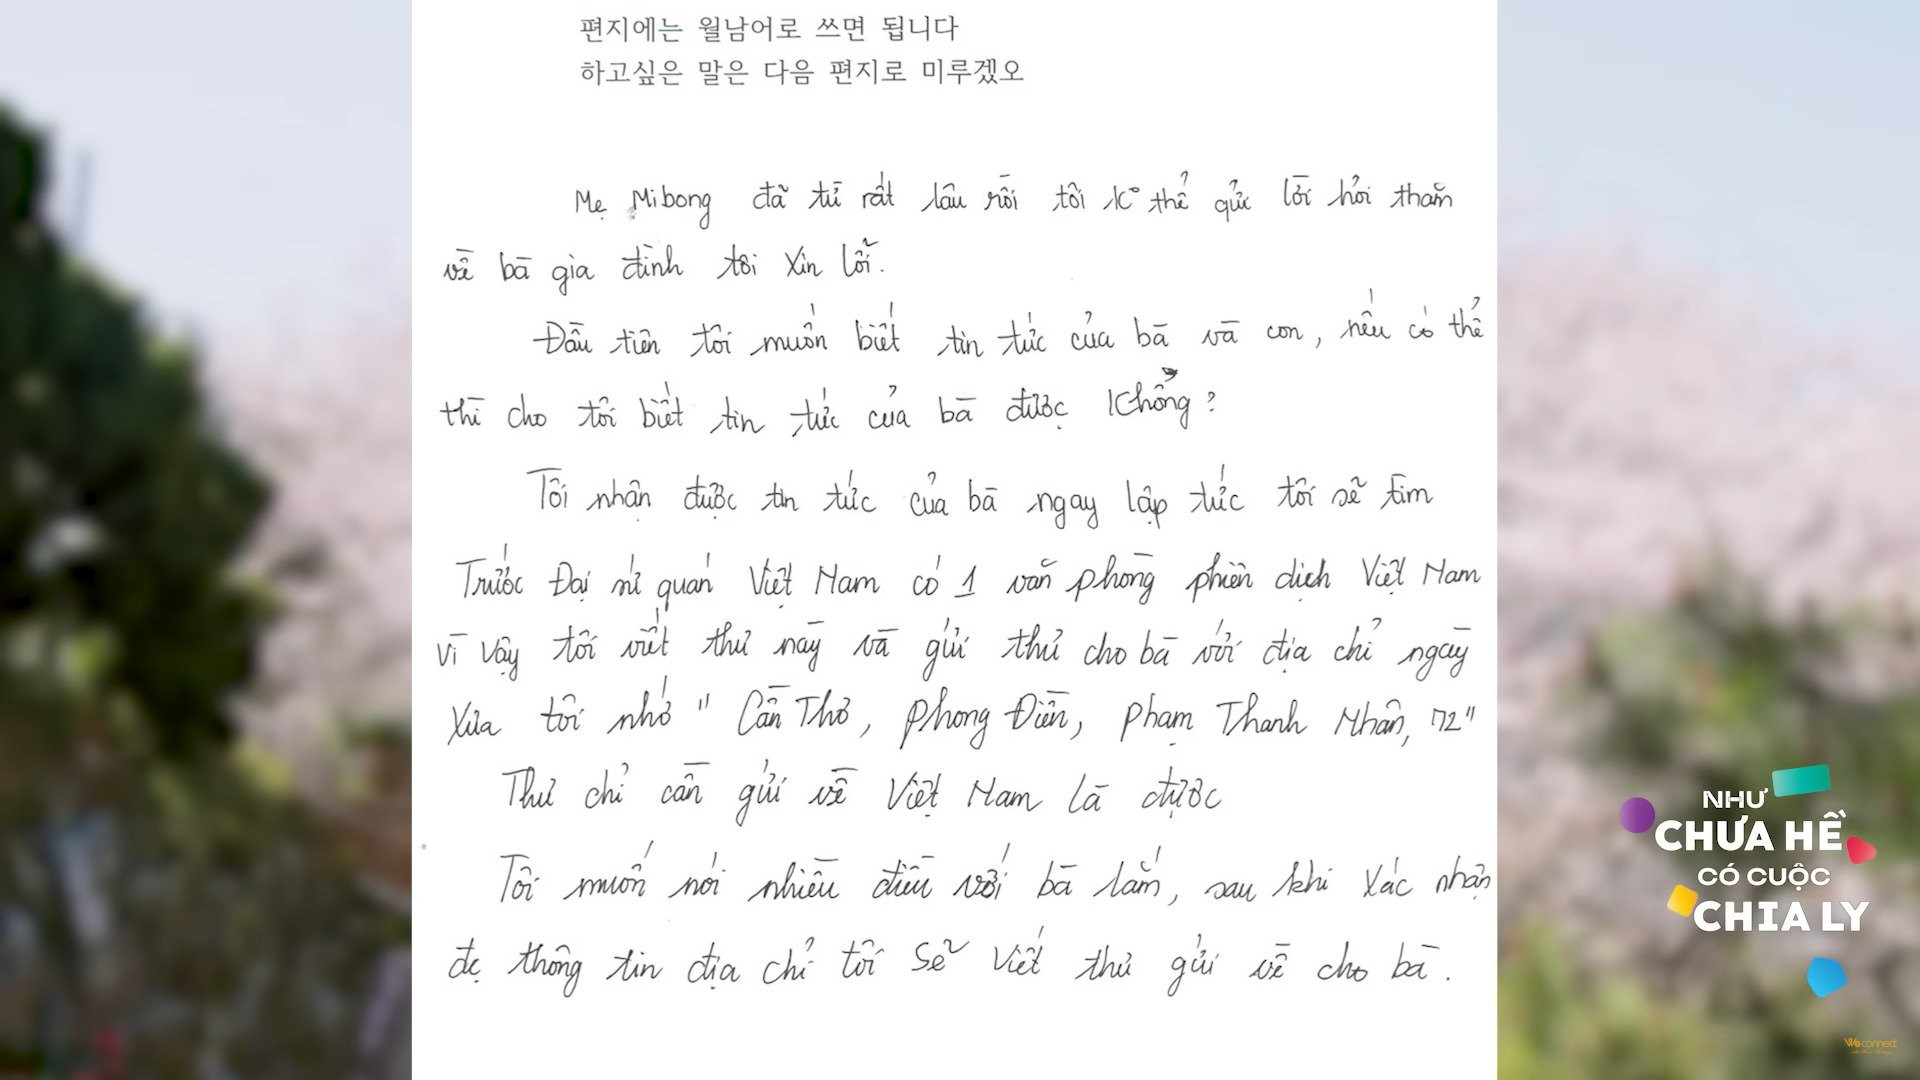 편지에는 월남어로 쓰면 됩니다
하고싶은 말은 다음 편지로 미루겠오
Mẹ Mibong đã từ rất lâu rồi tôi k° thể gửi lời hỏi thăm
về bà gia đình tôi xin lỗi.
Đầu tiên tôi muốn biết tin tức của bà và con, nếu có thể
thì cho tôi biết tin tức của bà được không?
Tôi nhận được tin tức của bà ngay lập tức tôi sẽ tìm
Trước Đại sứ quán Việt Nam có 1 văn phòng phiên dịch Việt Nam
vì vậy tôi viết thư này và gửi thư cho bà với địa chỉ ngày
xưa tôi nhớ " Cần Thơ, Phong Điền, Phạm Thanh Nhân, 72"
Thư chỉ cần gửi về Việt Nam là được
Tôi muốn nói nhiều điều với bà lắm, sau khi xác nhận
đc thông tin địa chỉ tôi sẽ viết thư gửi về cho bà.
NHƯ
CHƯA HỀ
CÓ CUỘC
CHIA LY
We connect